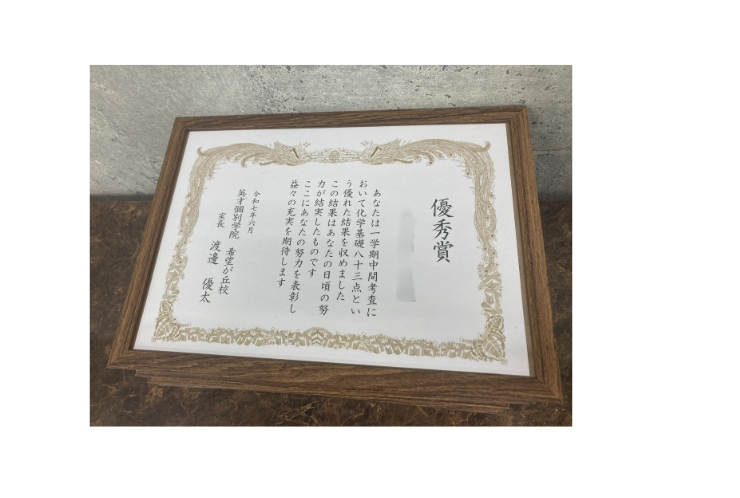 優秀賞
あなたは一学期中間考査に
おいて化学基礎八十三点とい
う優れた結果を収めました
この結果はあなたの日頃の努
力が結実したものです
ここにあなたの努力を表彰し
益々の充実を期待します
令和七年六月
英才個別学院 希望が丘校
室長 渡邉 優太